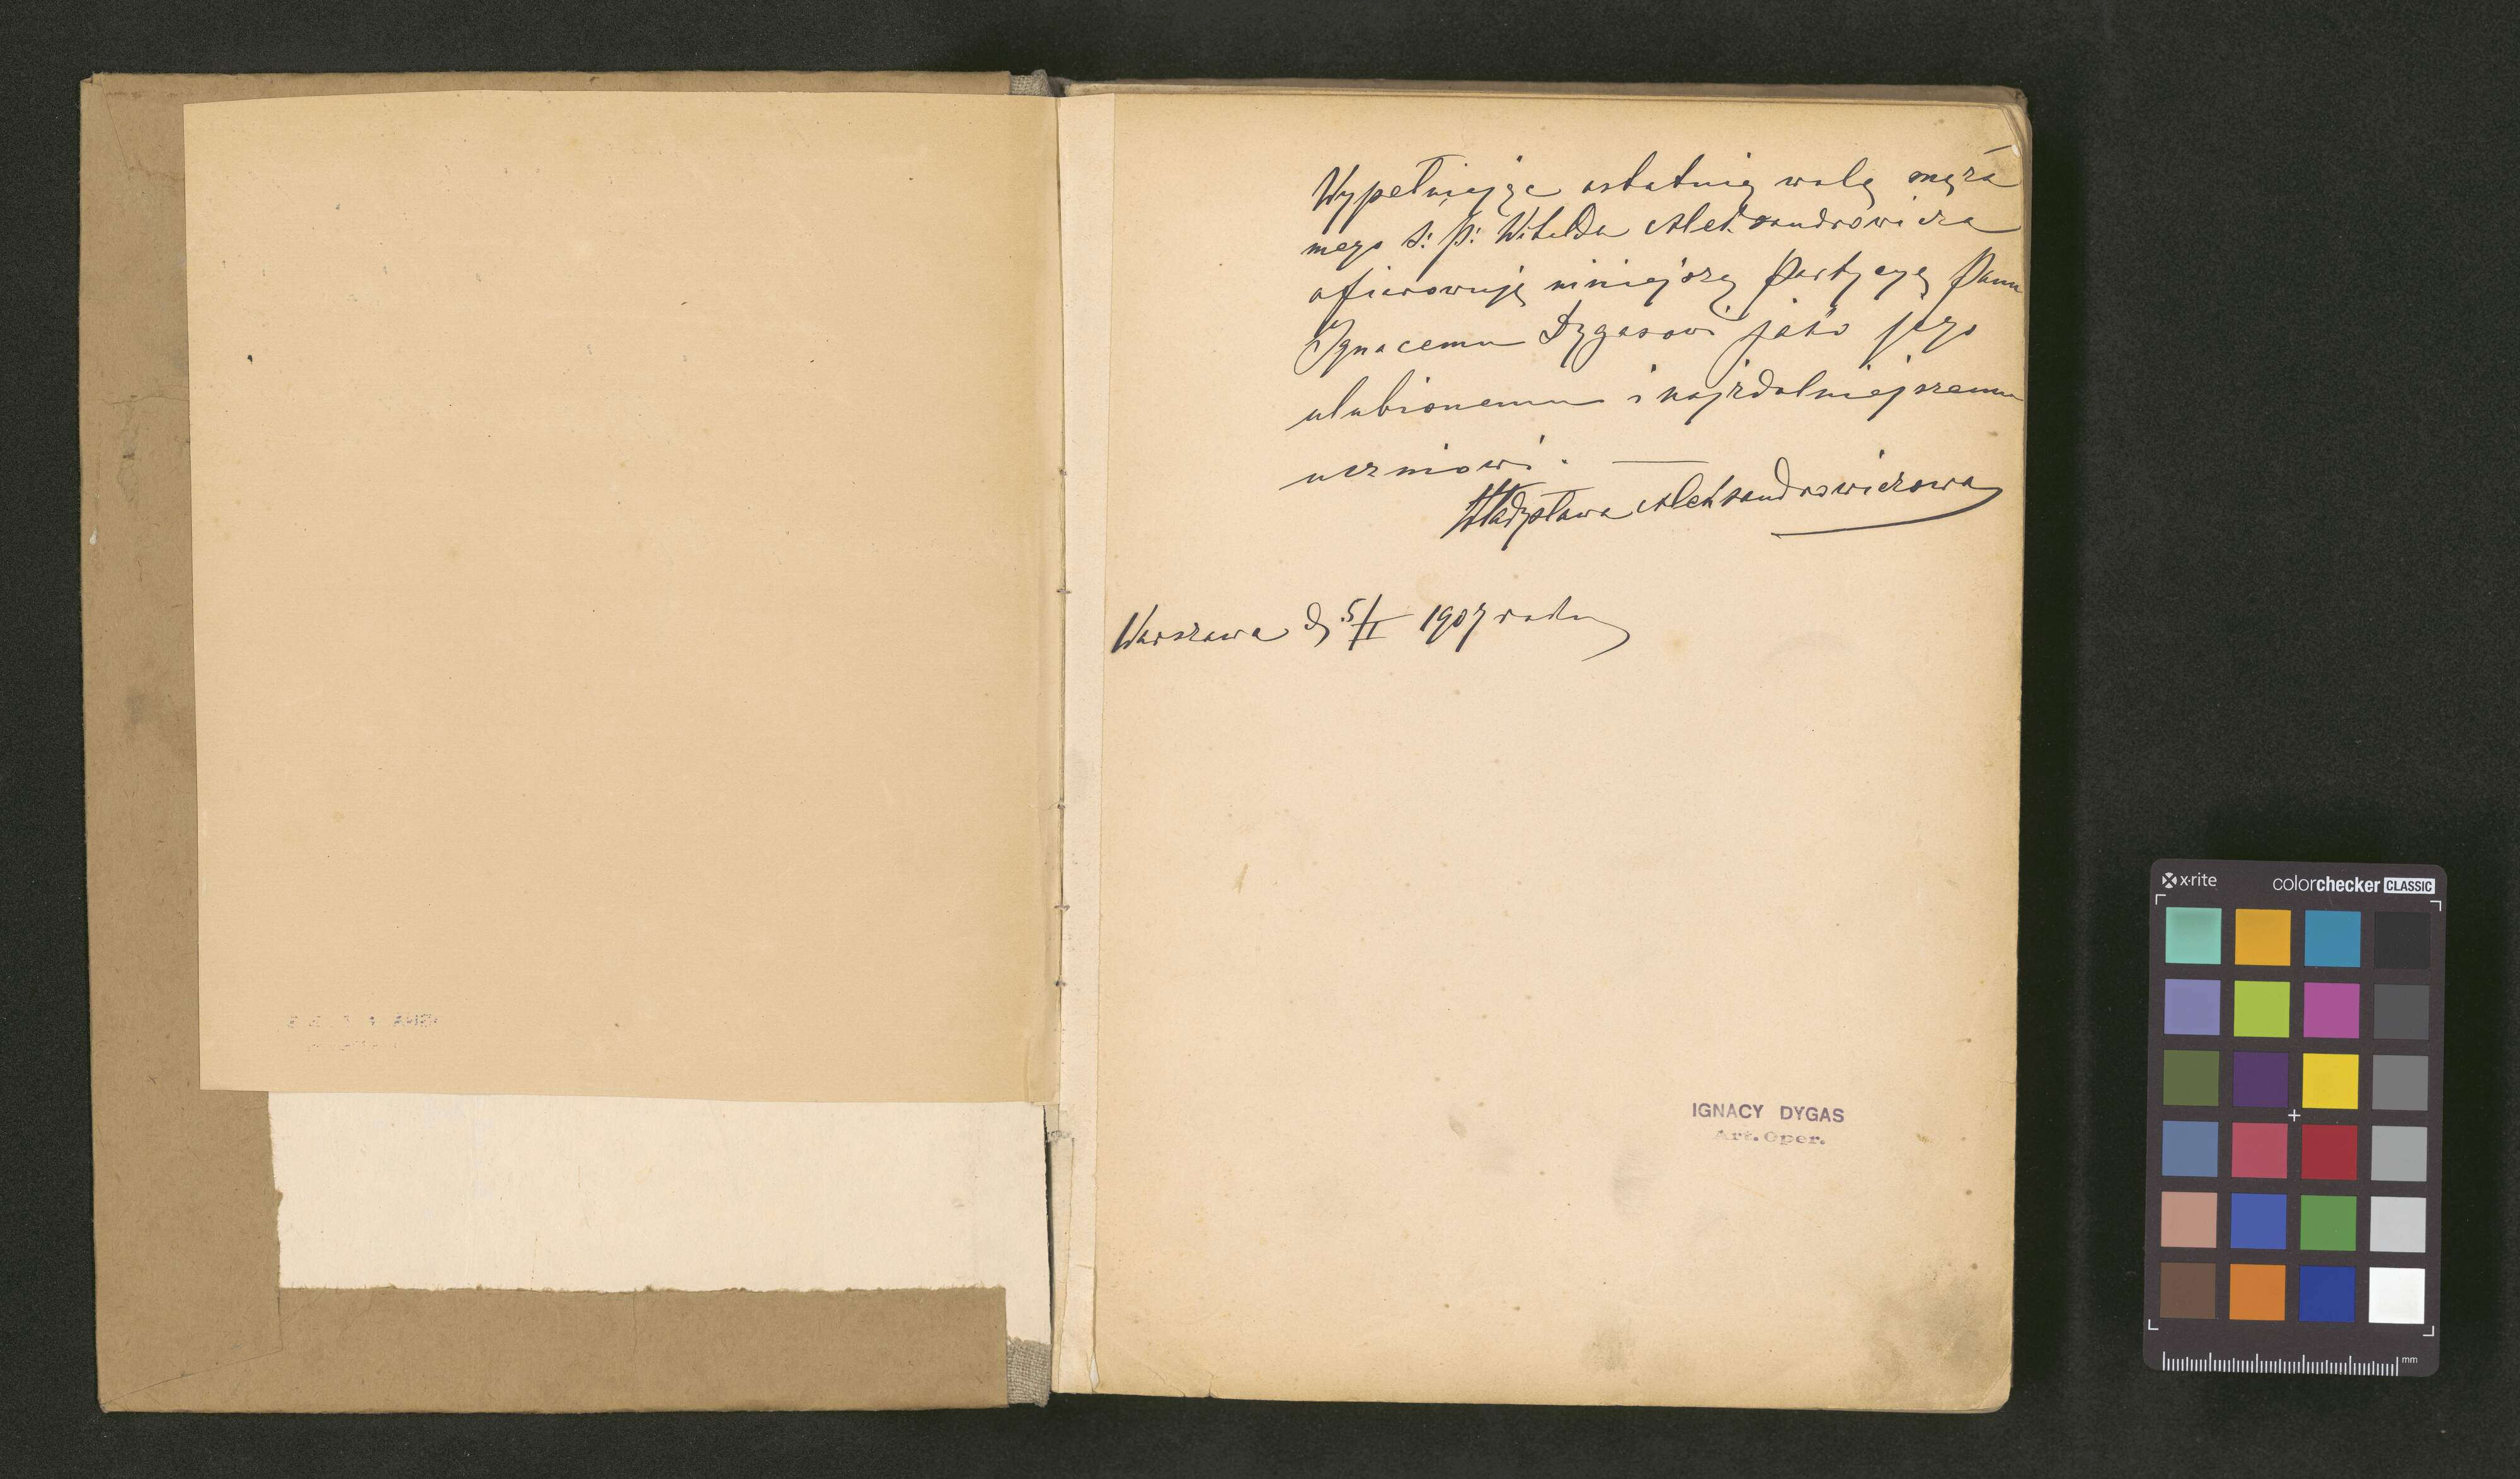 Wypełniając ostatnią wolę męża
mego ś: p: Witolda Aleksandrowicza
ofiarowuję niniejszą Partycyę Panu
Ignacemu Dygasowi jako jego
ulubionemu i najzdolniejszemu
uczniowi. —
Władysława Aleksandrowiczowa
Warszawa d 5/II 1907 roku
IGNACY DYGAS
Art. Oper.
x·rite
colorchecker CLASSIC
mm